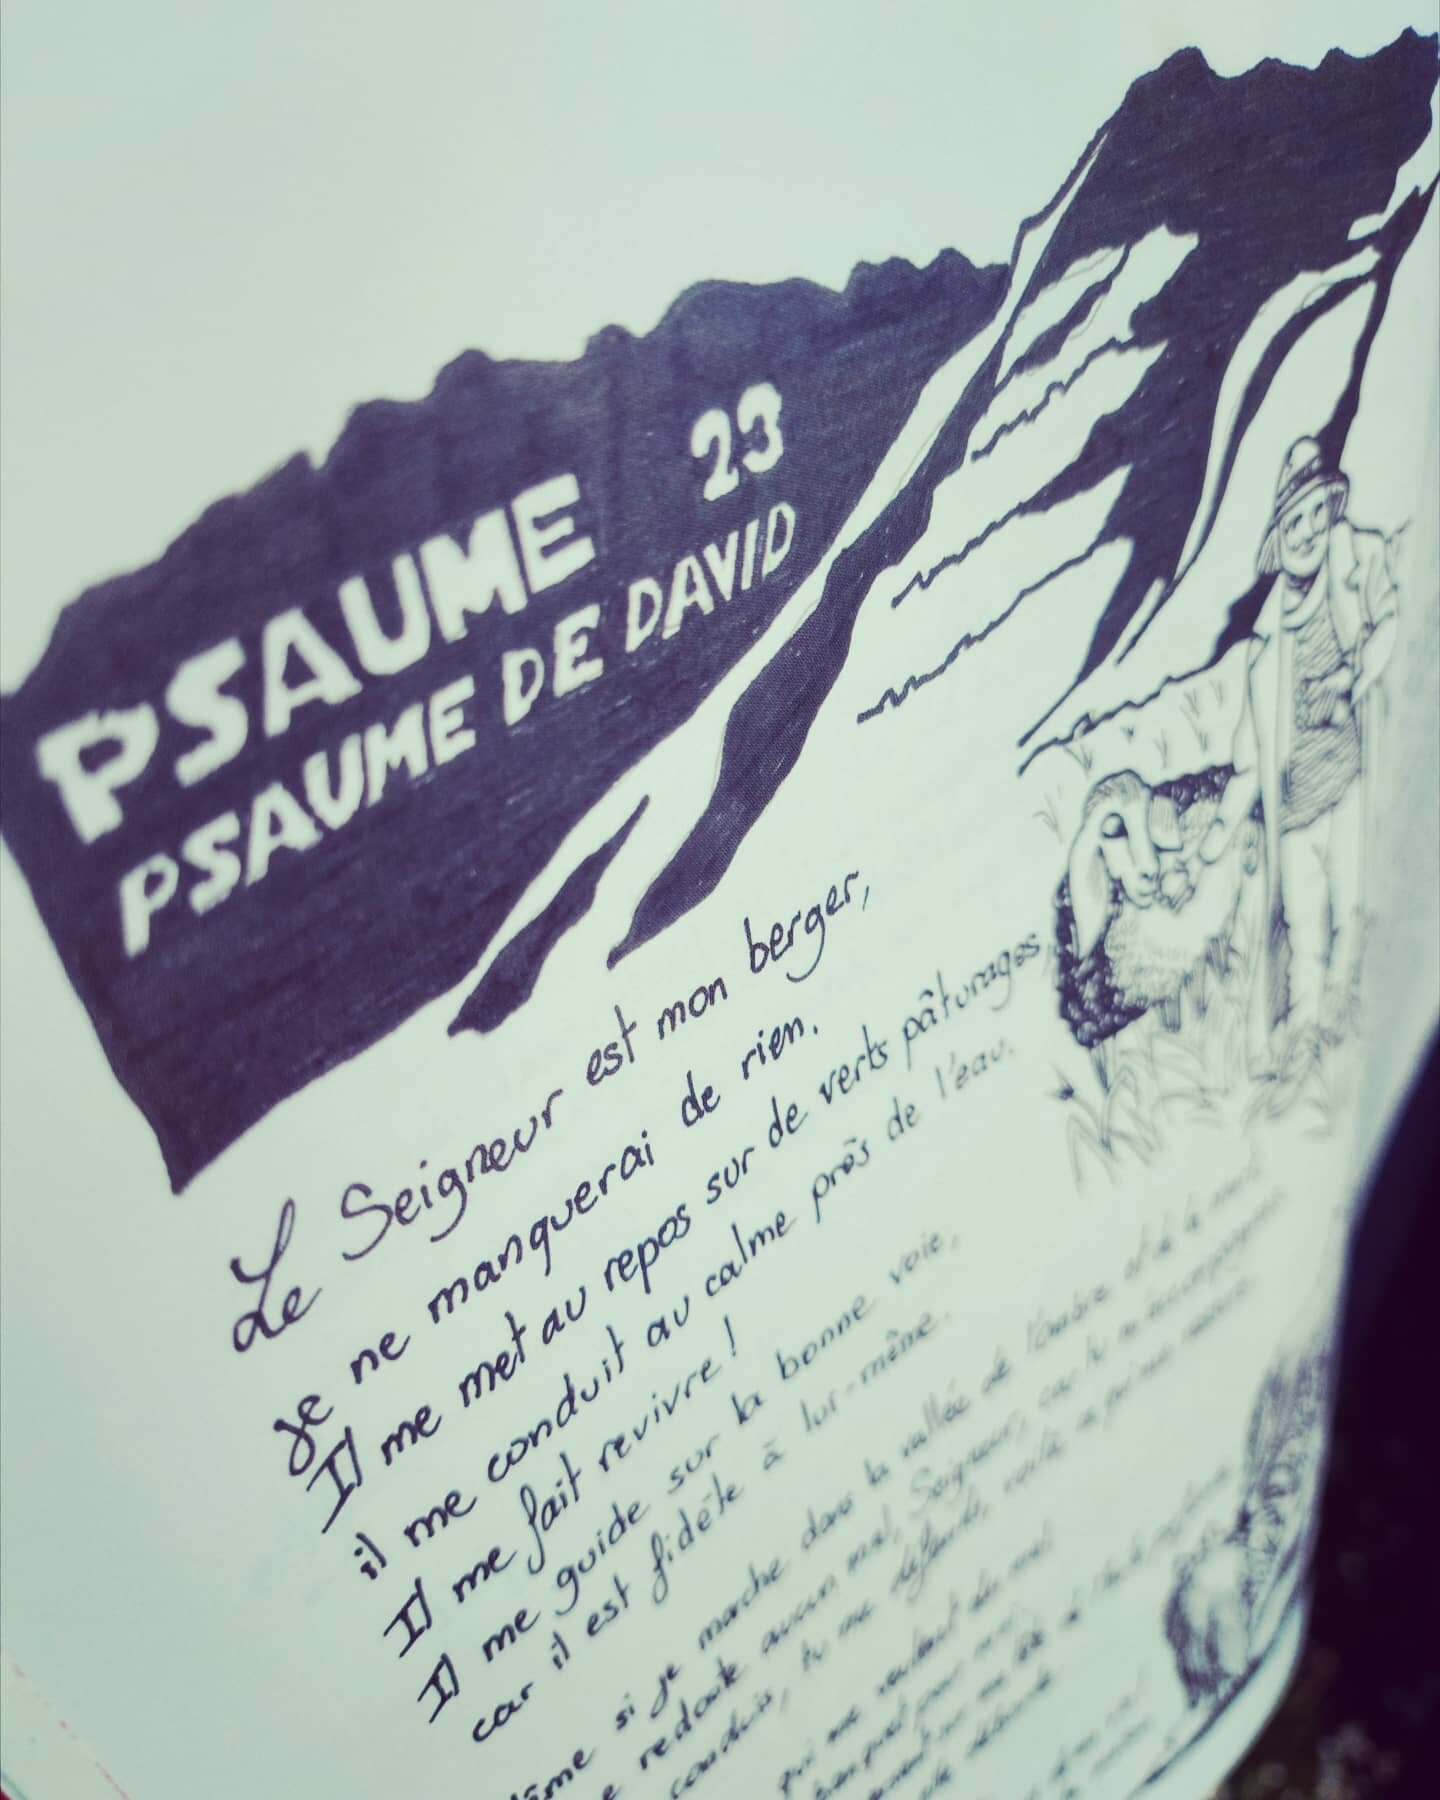 PSAUME 23
PSAUME DE DAVID
Le Seigneur est mon berger,
je ne manquerai de rien.
Il me met au repos sur de verts pâturages
il me conduit au calme près de l'eau.
Il me fait revivre !
Il me guide sur la bonne voie,
car il est fidèle à lui-même.
si je marche dans la vallée de l'ombre et de la mort
redoute aucun mal, Seigneur, car tu m'accompagnes
conduis, tu me défends, voilà ce qui me rassure
qui me veulent du mal